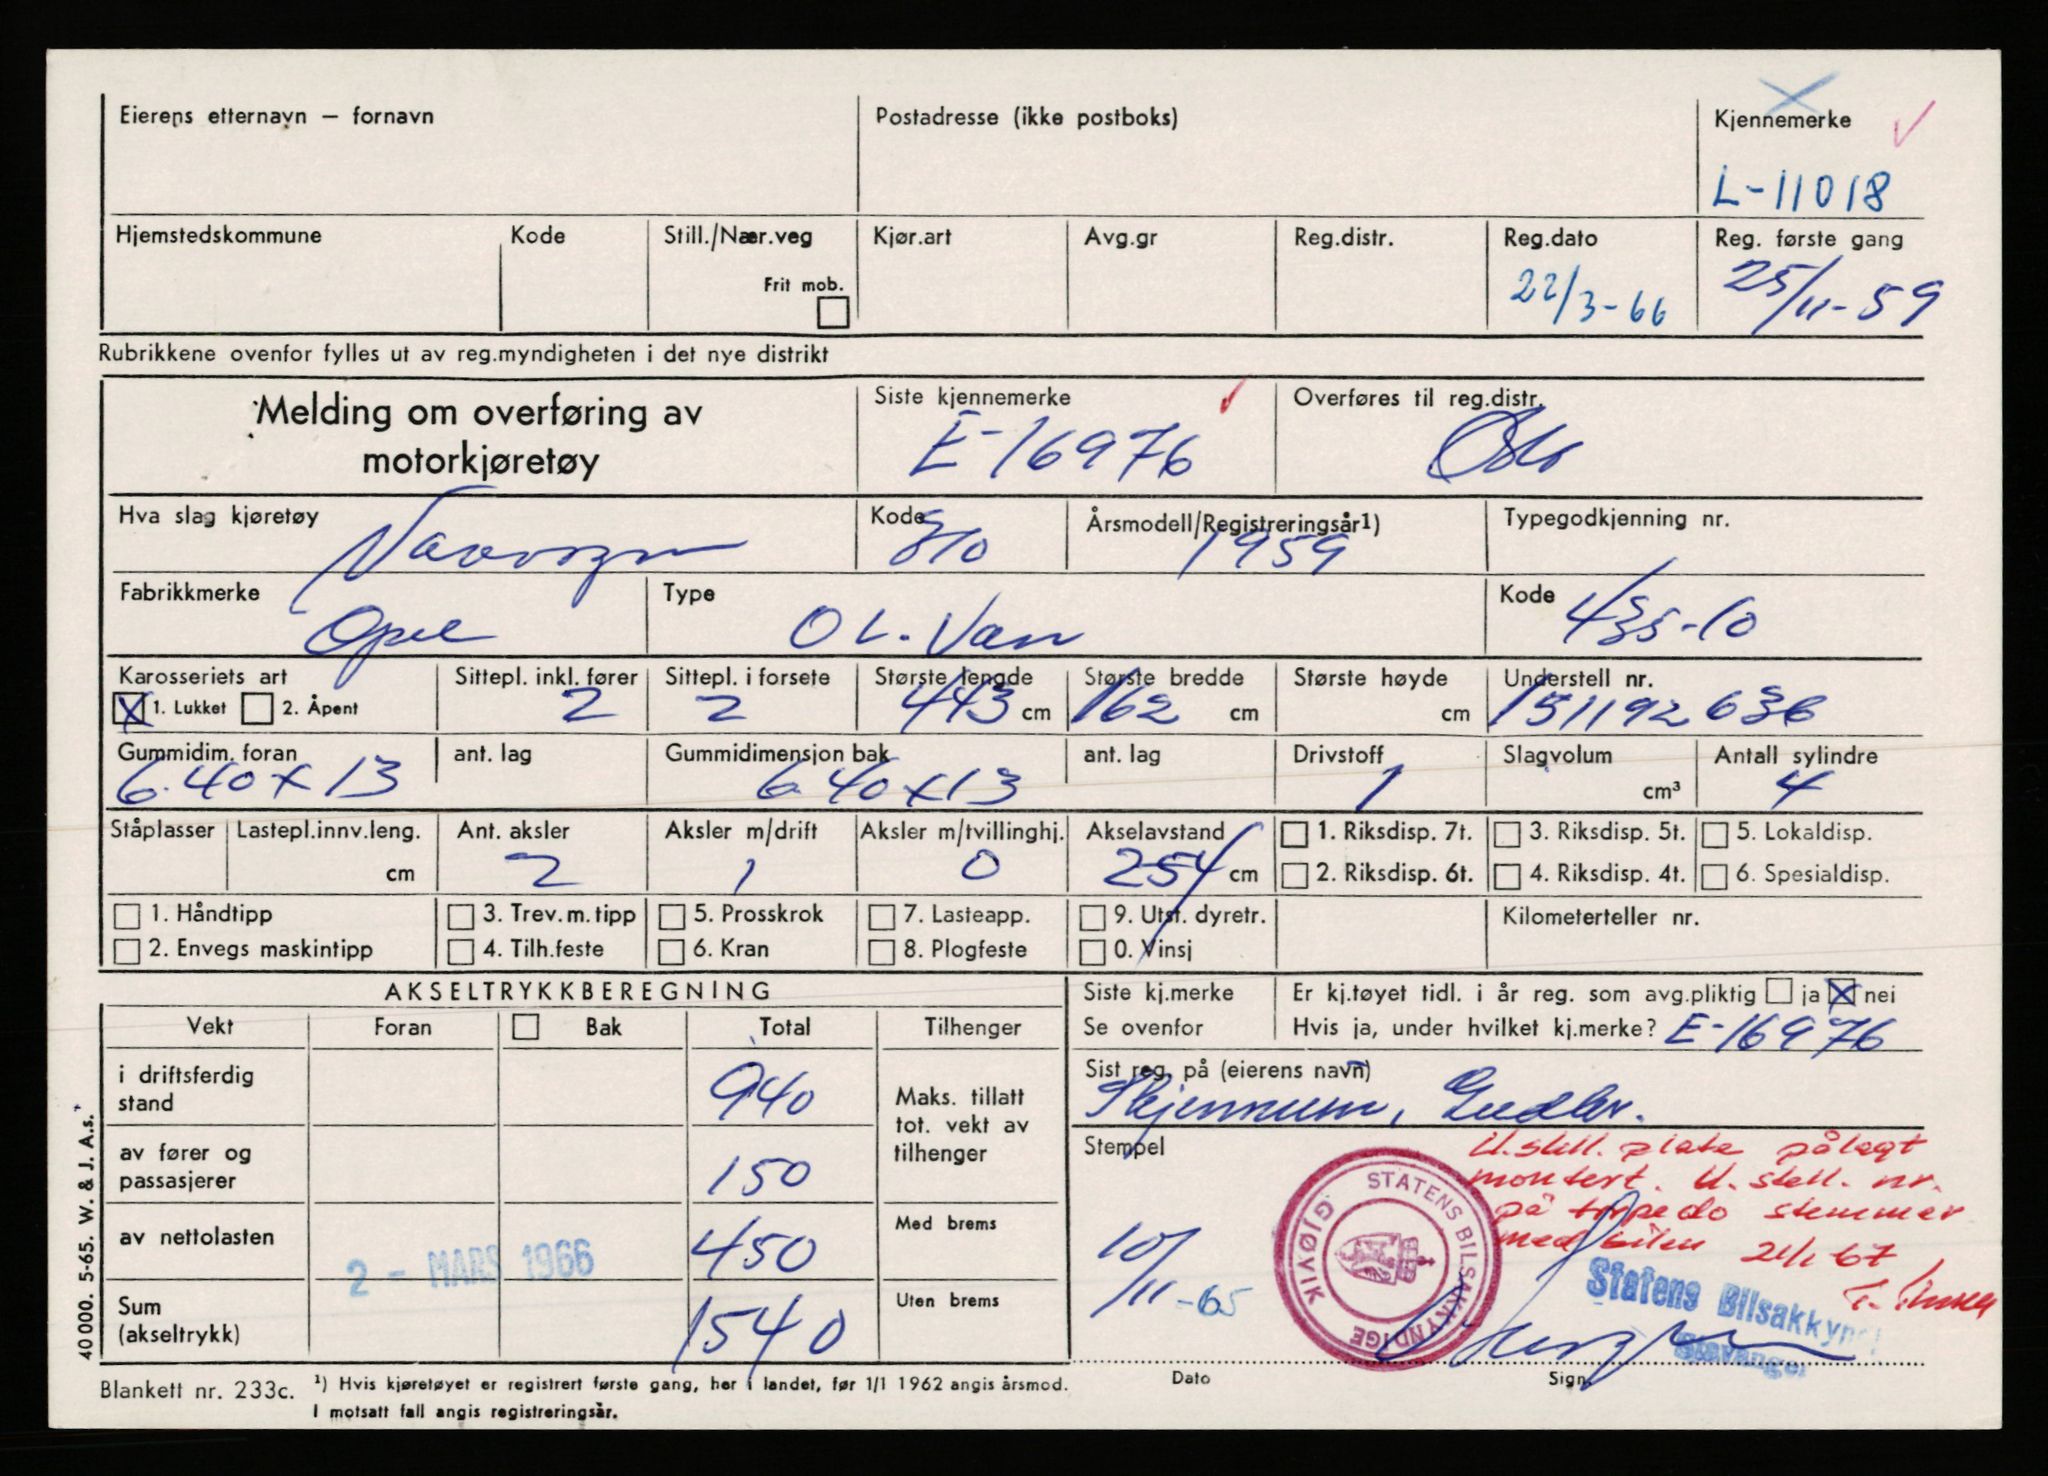 Eierens etternavn – fornavn
Postadresse (ikke postboks)
Kjennemerke
L-11018
Hjemstedskommune
Kode
Still./Nær.veg
Frit mob.
Kjør.art
Avg.gr
Reg.distr.
Reg.dato
22/3-66
Reg. første gang
25/11-59
Rubrikkene ovenfor fylles ut av reg.myndigheten i det nye distrikt
Melding om overføring av
motorkjøretøy
Siste kjennemerke
E-16976
Overføres til reg.distr.
Oslo
Hva slag kjøretøy
Varevogn
Kode
310
Årsmodell/Registreringsår1)
1959
Typegodkjenning nr.
Fabrikkmerke
Opel
Type
OL. Van
Kode
435-10
Karosseriets art
X 1. Lukket 2. Åpent
Sittepl. inkl. fører
2
Sittepl. i forsete
2
Største lengde
443 cm
Største bredde
162 cm
Største høyde
cm
Understell nr.
151192636
Gummidim. foran
6.40x13
ant. lag
Gummidimensjon bak
6.40x13
ant. lag
Drivstoff
1
Slagvolum
cm³
Antall sylindre
4
Ståplasser
Lastepl.innv.leng.
cm
Ant. aksler
2
Aksler m/drift
1
Aksler m/tvillinghj.
0
Akselavstand
254 cm
1. Riksdisp. 7t. 3. Riksdisp. 5t. 5. Lokaldisp.
2. Riksdisp. 6t. 4. Riksdisp. 4t. 6. Spesialdisp.
1. Håndtipp 3. Trev.m.tipp 5. Prosskrok 7. Lasteapp. 9. Utst. dyretr.
2. Envegs maskintipp 4. Tilh.feste 6. Kran 8. Plogfeste 0. Vinsj
Kilometerteller nr.
AKSELTRYKKBEREGNING
Vekt Foran Bak Total Tilhenger
i driftsferdig
stand
940
av fører og
passasjerer
150
av nettolasten
450
2 - MARS 1966
Sum
(akseltrykk)
1540
Maks. tillatt
tot. vekt av
tilhenger
Med brems
Uten brems
Siste kj.merke
Se ovenfor
Er kj.tøyet tidl. i år reg. som avg.pliktig ja X nei
Hvis ja, under hvilket kj.merke? E-16976
Sist reg. på (eierens navn)
Skjennum,
Stempel
U.stell. plate pålagt
montert. U.stell. nr.
på torpedo stemmer
med bilen 21/1 67
10/11-65
STATENS BILSAKKYNDIGE GJØVIK
Statens Bilsakkyndi
Stavanger
Dato
Sign.
40 000. 5-65. W. & J. A.s.
Blankett nr. 233c.
1) Hvis kjøretøyet er registrert første gang, her i landet, før 1/1 1962 angis årsmod.
I motsatt fall angis registreringsår.